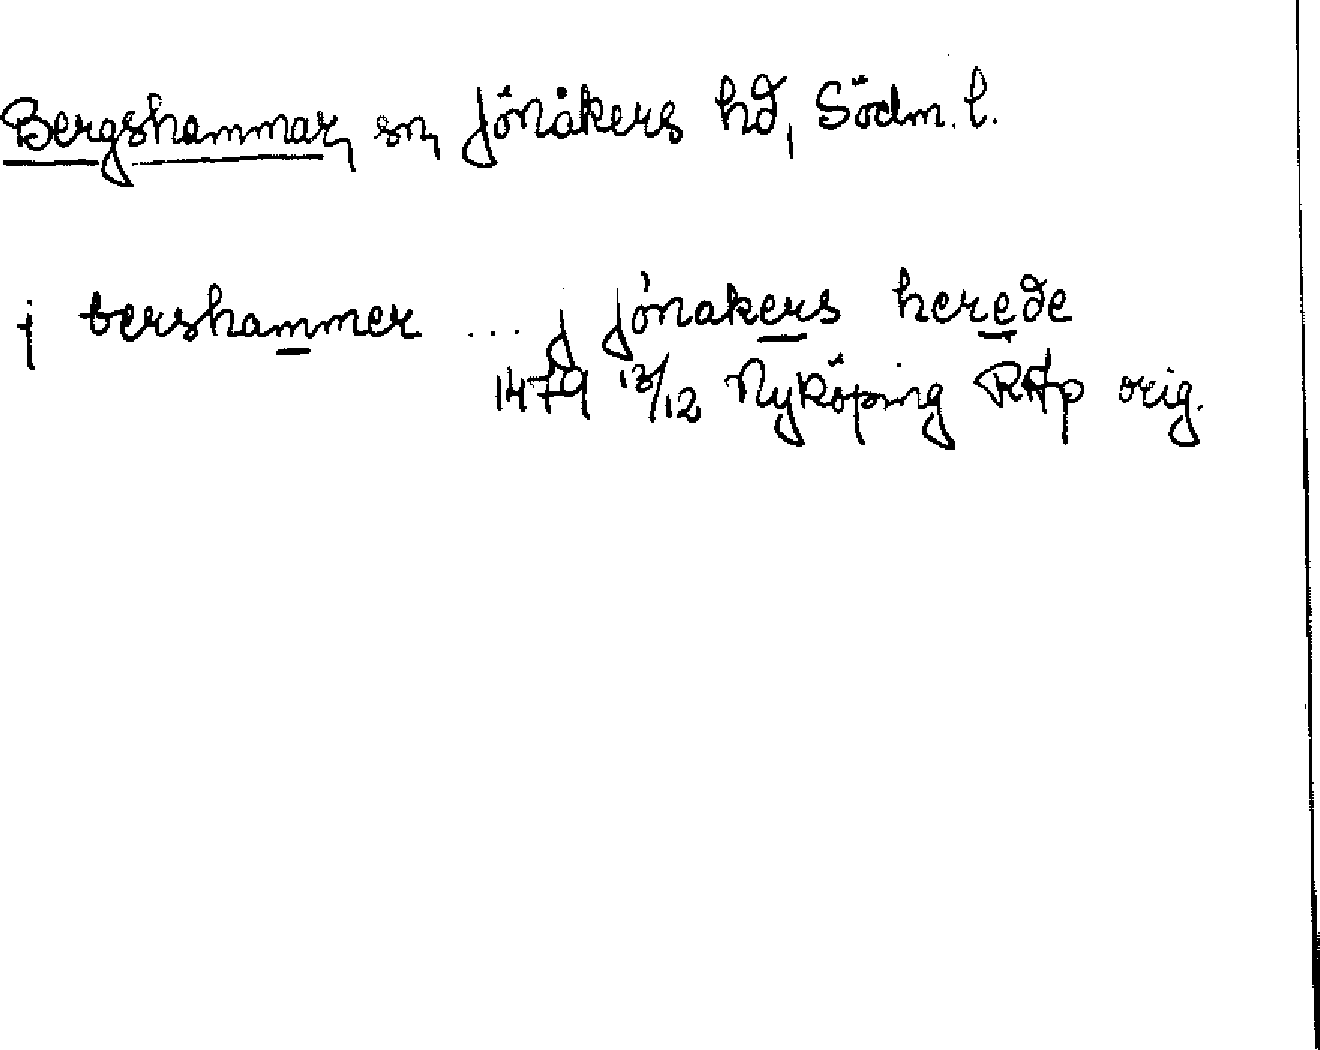 Bergshammar, sn, Jönåkers hd, Södm. l.
j bershammer ... j jónakers herede
1479 13/12 Nyköping RAp orig.